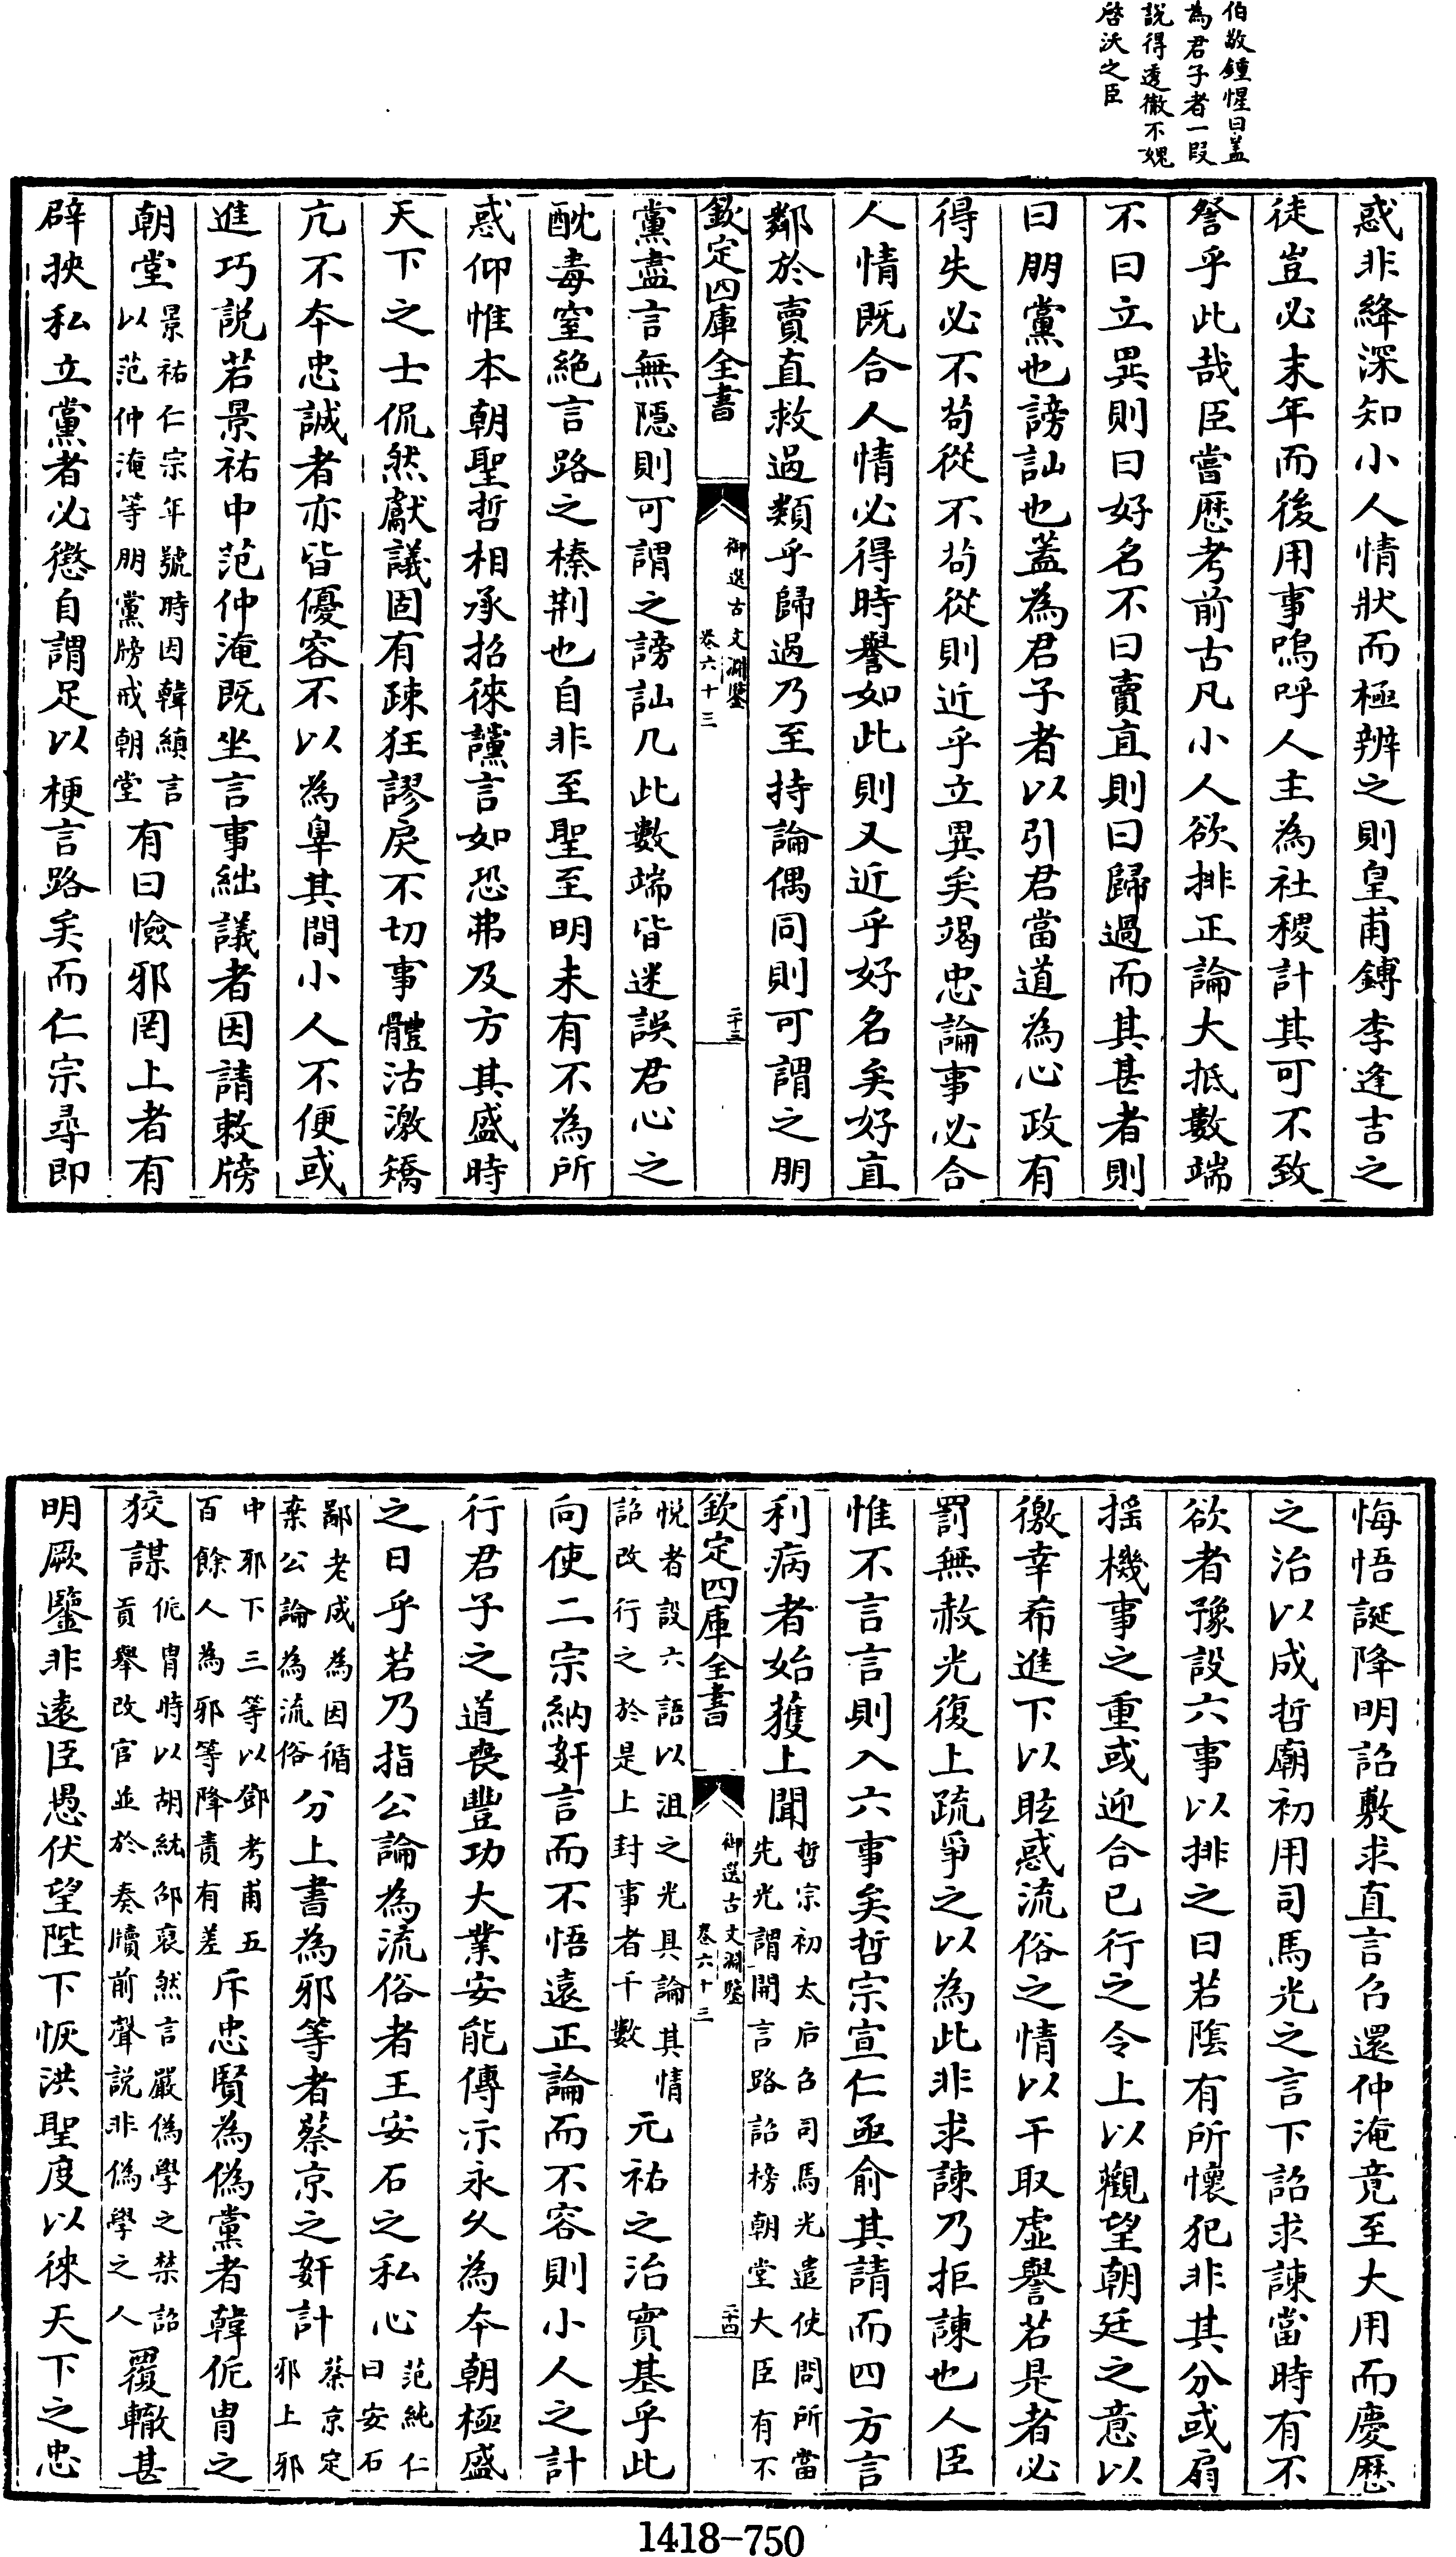 伯敬鍾惺曰蓋
為君子者一段
說得透徹不媿
啓沃之臣
惑非絳深知小人情狀而極辨之則皇甫鎛李逢吉之
徒豈必末年而後用事嗚呼人主為社稷計其可不致
詧乎此哉臣嘗歴考前古凡小人欲排正論大抵數端
不曰立異則曰好名不曰賣直則曰歸過而其甚者則
曰朋黨也謗訕也蓋為君子者以引君當道為心政有
得失必不茍從不茍從則近乎立異矣竭忠論事必合
人情既合人情必得時譽如此則又近乎好名矣好直
鄰於賣直救過類乎歸過乃至持論偶同則可謂之朋
欽定四庫全書
御選古文淵鑒
卷六十三
二十三
黨盡言無隱則可謂之謗訕凡此數端皆迷誤君心之
酖毒窒絶言路之榛荆也自非至聖至明未有不為所
惑仰惟本朝聖哲相承招徠讜言如恐弗及方其盛時
天下之士侃然獻議固有疎狂謬戾不切事體沽激矯
亢不本忠誠者亦皆優容不以為辠其間小人不便或
進巧説若景祐中范仲淹既坐言事絀議者因請敕牓
朝堂景祐仁宗年號時因韓縝言以范仲淹等朋黨牓戒朝堂有曰憸邪罔上者有
辟挾私立黨者必懲自謂足以梗言路矣而仁宗尋即
悔悟誕降明詔敷求直言召還仲淹竟至大用而慶歴
之治以成哲廟初用司馬光之言下詔求諫當時有不
欲者豫設六事以排之曰若陰有所懷犯非其分或扇
揺機事之重或迎合已行之令上以觀望朝廷之意以
徼幸希進下以眩惑流俗之情以干取虛譽若是者必
罰無赦光復上疏爭之以為此非求諫乃拒諫也人臣
惟不言言則入六事矣哲宗宣仁亟俞其請而四方言
利病者始獲上聞哲宗初太后召司馬光遣使問所當先光謂開言路詔榜朝堂大臣有不
欽定四庫全書
御選古文淵鑒
卷六十三
二十四
悦者設六語以沮之光具論其情詔改行之於是上封事者千數元祐之治實基乎此
向使二宗納姧言而不悟遠正論而不容則小人之計
行君子之道喪豐功大業安能傳示永久為本朝極盛
之日乎若乃指公論為流俗者王安石之私心范純仁曰安石
鄙老成為因循棄公論為流俗分上書為邪等者蔡京之姧計蔡京定邪上邪
中邪下三等以鄧考甫五百餘人為邪等降責有差斥忠賢為偽黨者韓侂胄之
狡謀侂胄時以胡紘邵裒然言嚴偽學之禁詔貢舉改官並於奏牘前聲説非偽學之人覆轍甚
明厥鑒非遠臣愚伏望陛下恢洪聖度以徠天下之忠
1418-750